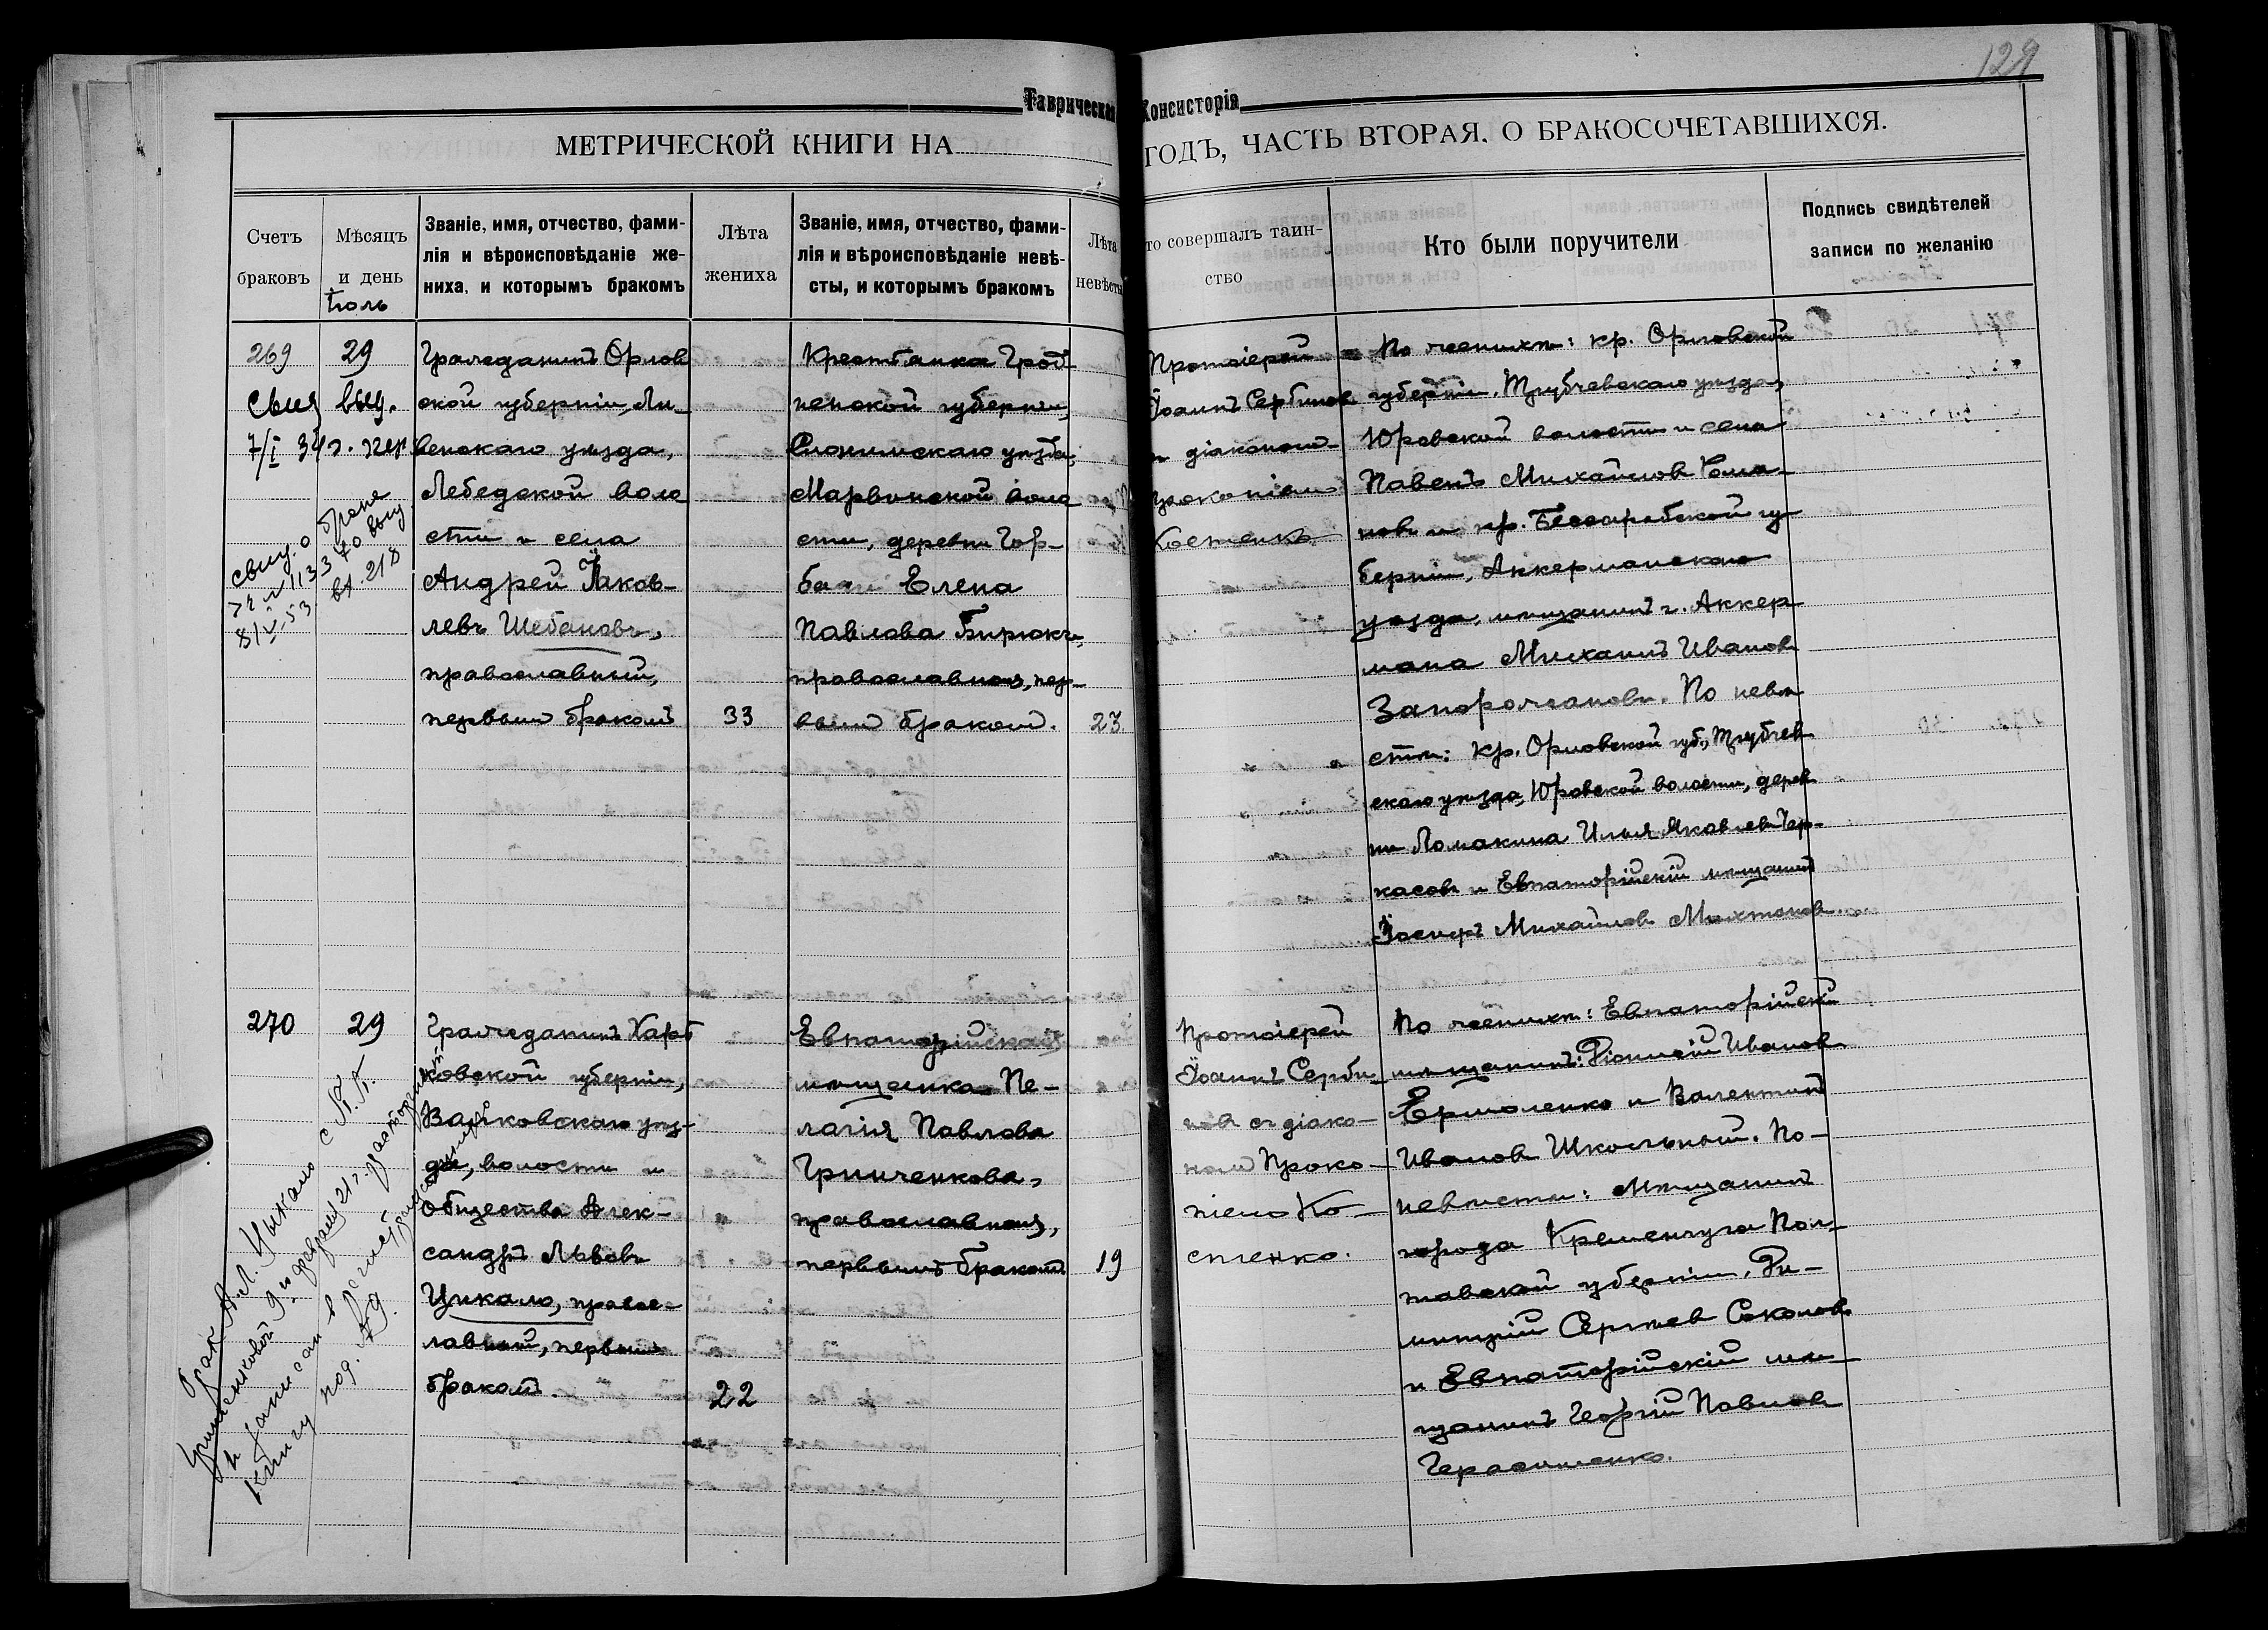 129
Таврическая Консисторія
МЕТРИЧЕСКОЙ КНИГИ НА ГОДЪ, ЧАСТЬ ВТОРАЯ. О БРАКОСОЧЕТАВШИХСЯ.
Счетъ браковъ
Мѣсяцъ и день
Званіе, имя, отчество, фами-
лія и вѣроисповѣданіе же-
ниха, и которымъ бракомъ
Лѣта жениха
Званіе, имя, отчество, фами-
лія и вѣроисповѣданіе невѣ-
сты, и которымъ бракомъ
Лѣта невѣсты
то совершалъ таин-
ство
Кто были поручители
Подпись свидѣтелей
записи по желанію
Іюль
269
29
Свид выд.
7/I 34 г.
свид. о браке
выд.
8/V.53
Гражданинъ Орлов
ской губерніи, Ли-
венскаго уѣзда,
Лебедской воло
сти и села
Андрей Яков-
левъ Шебановъ,
православный,
первымъ бракомъ
33
Крестьянка Грод
ненской губерніи,
Слонимскаго уѣзда,
Марвинской воло
сти, деревни Гор-
бачи Елена
Павлова Бирюкъ,
православная, пер-
вымъ бракомъ.
23.
Протоіерей
Іоаннъ Сербинов
діакономъ
Прокопіемъ
Костенко
По женихѣ: кр. Орловской
губерніи, Трубчевскаго уѣзда,
Юровской волости и села
Павелъ Михайлов Рома-
нов и кр. Бессарабской гу-
берніи, Аккерманскаго
уѣзда, мѣщанинъ г. Аккер
мана Михаилъ Иванов
Запорожановъ. По невѣ
стѣ: кр. Орловской губ., Трубчев
скаго уѣзда, Юровской волости, дерев
ни Ломакина Илья Яковлевъ Чер-
касовъ и Евпаторійскій мѣщанинъ
Іосифъ Михайлов
270
29
Гражданинъ Харь
ковской губерніи,
Валковскаго уѣз-
да, волости и
общества Алек-
сандръ Львовъ
Цикало, правос-
лавный, первымъ
бракомъ.
22
Евпаторійская
мѣщанка Пе-
лагія Павлова
Гринченкова,
православная,
первымъ бракомъ
19
Протоіерей
Іоаннъ Серби-
новъ съ діако-
номъ Проко-
піемъ Ко-
стенко.
По женихѣ: Евпаторійскій
мѣщанинъ: Діонисій Иванов
Ермоленко и Валентинъ
Иванов Школьный. По-
невѣстѣ: Мѣщанинъ
города Кременчуга Пол-
тавской губерніи, Ди-
митрій Сергѣев Соколов
и Евпаторійскій мѣ-
щанинъ Георгій Павлов
Герасименко.
Брак А.Л. Цикало с П.П.
Гринченковой 9го февраля 21 г. расторгнут
и записан в регистрационную
книгу под. № 9.